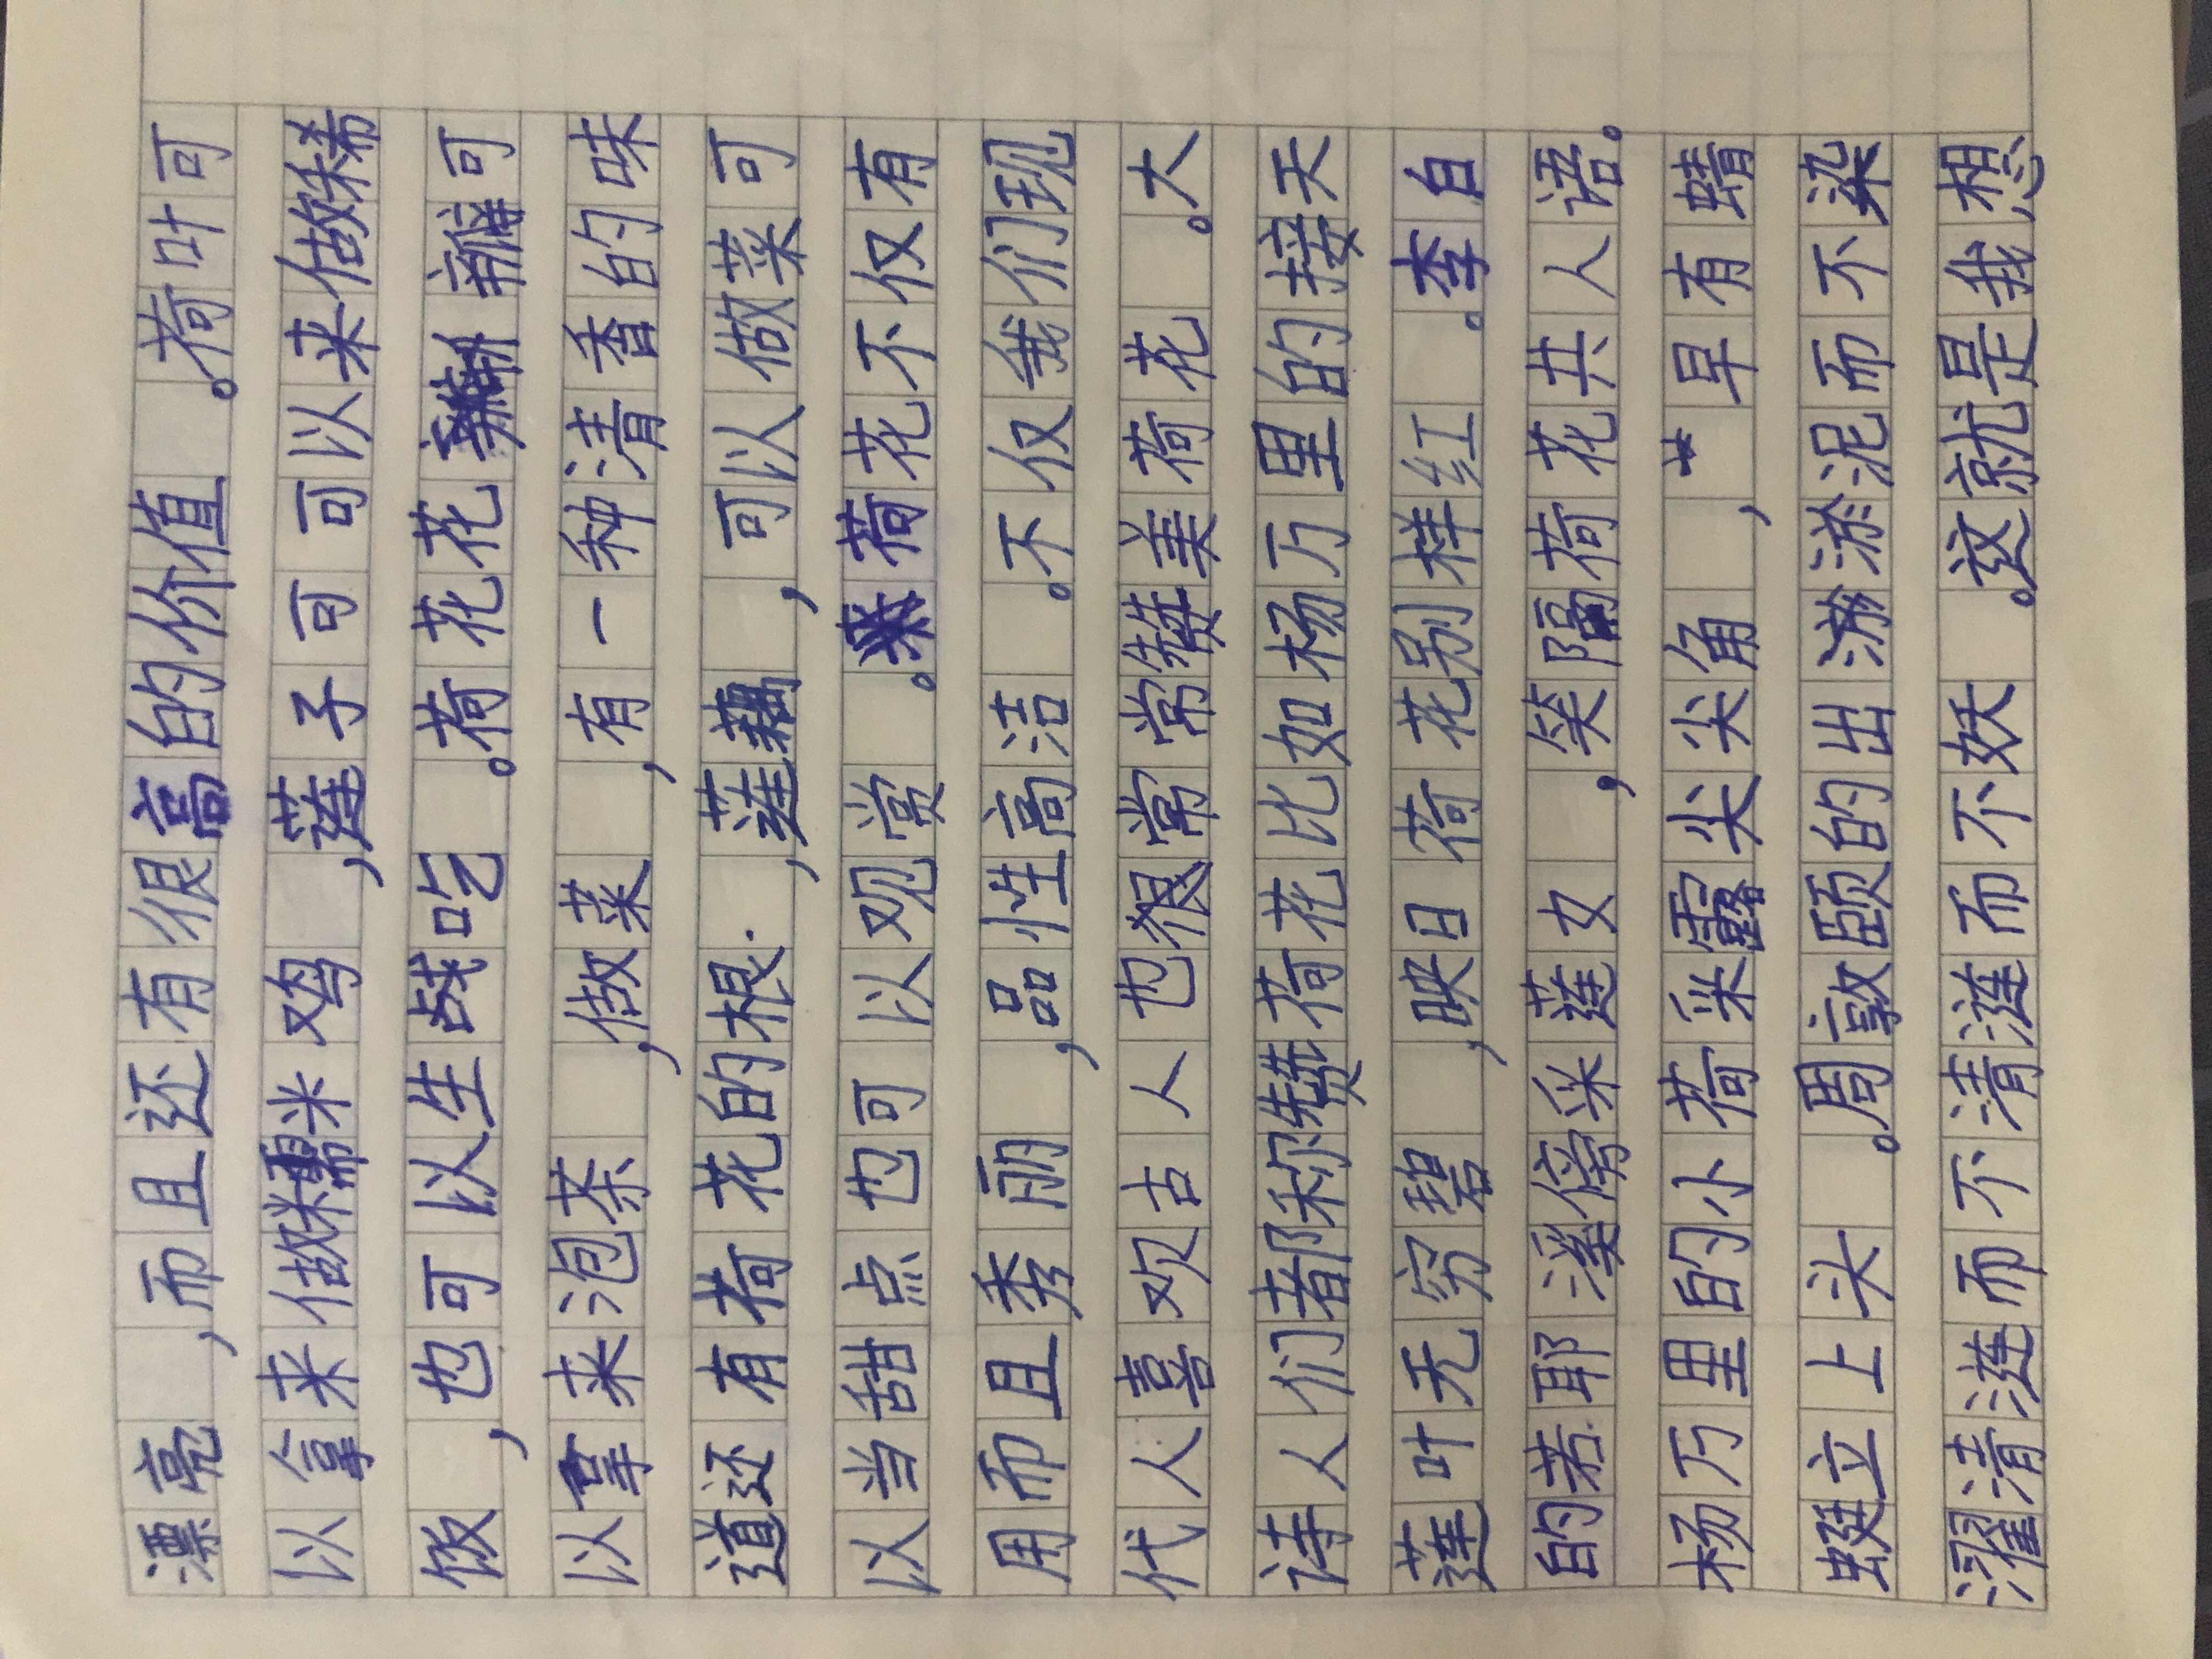 漂亮，而且还有很高的价值。荷叶可
以拿来做糯米鸡，莲子可可以来做稀
饭，也可以生吃。荷花花瓣可
以拿来泡茶，做菜，有一种清香的味
道还有荷花的根，莲藕，可以做菜可
以当甜点也可以观赏。荷花不仅有
用而且秀丽，品性高洁。不仅我们现
代人喜欢古人也很常常赞美荷花。大
诗人们都称赞荷花比如杨万里的接天
莲叶无穷碧，映日荷花别样红。李白
的若耶溪傍采莲女，笑隔荷花共人语。
杨万里的小荷采露尖尖角，早有蜻
蜓立上头。周敦颐的出淤泥而不染
濯清涟而不清涟而不妖。这就是我想